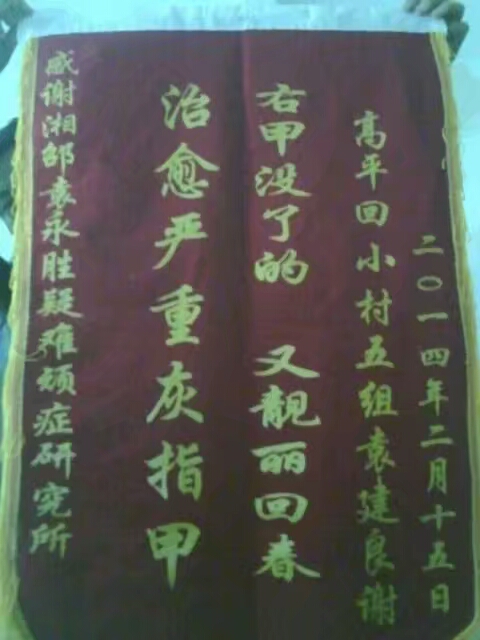 感谢湘邵袁永胜疑难顽症研究所
治愈严重灰指甲
右甲没了的 又靓丽回春
高平回小村五组袁建良谢
二〇一四年二月十五日